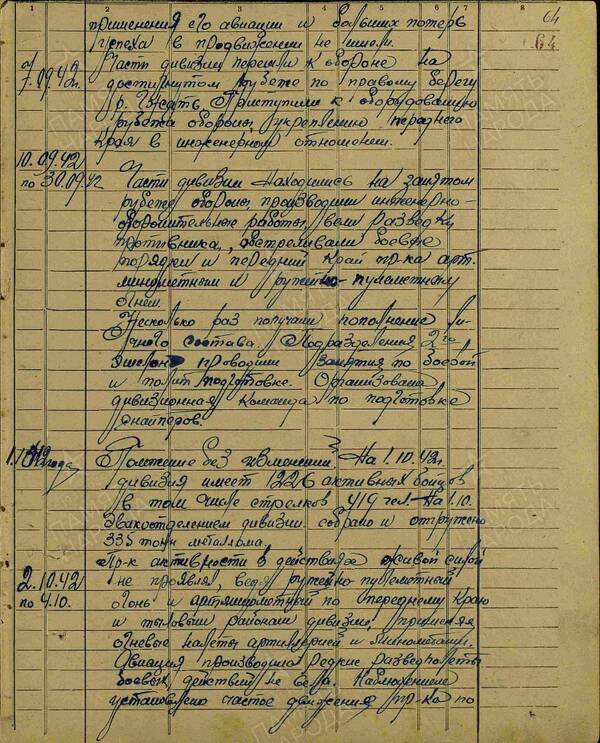 1 2 3 4 5 6 7 8
64
64
применения его авиации и больших потерь
успеха в продвижении не имели.
7.09.42г. Части дивизии перешли к обороне на
достигнутом рубеже по правому берегу
р. Гжать. Приступили к оборудованию
рубежа обороны, укреплению переднего
края в инженерном отношении.
10.09.42
по 30.09.42 Части дивизии находились на занятом
рубеже обороны, производили инженерно-
оборонительные работы, вели разведку
противника, обстреливали боевые
порядки и передний край пр-ка арт.
минометным и ружейно-пулеметным
огнем.
Несколько раз получали пополнение ли-
чного состава. Подразделения 2го
эшелона проводили занятия по боевой
и политподготовке. Организована
дивизионная команда по подготовке
снайперов.
Положение без изменений. На 1.10.42г.
дивизия имеет 1226 активных бойцов
в том числе стрелков 419 чел. На 1.10.
отделением дивизии собрано и отгружено
335 тонн металлома.
2.10.42
по 4.10. Пр-к активности в действиях живой силой
не проявлял, вел ружейно-пулеметный
огонь и артминометный по переднему краю
и тыловым районам дивизии, применяя
огневые налеты артиллерией и минометами.
Авиация производила редкие разведполеты
боевых действий не вела. Наблюдением
установлено частое движение пр-ка по
ПАМЯТЬ НАРОДА